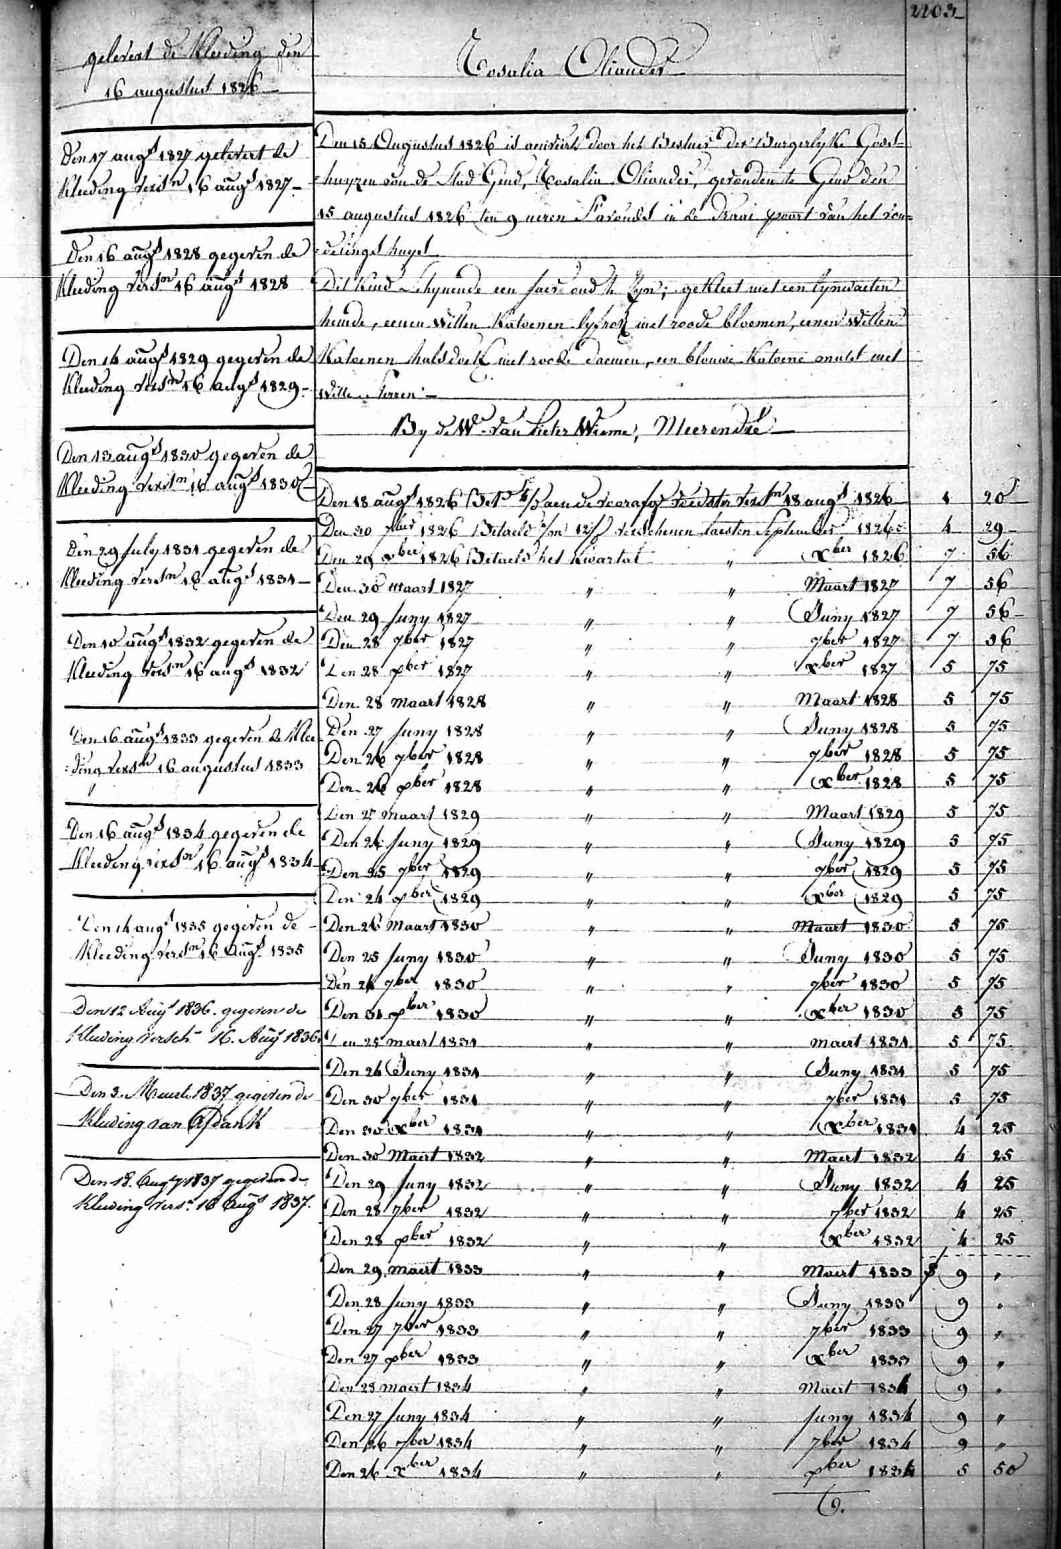 2203
gelevert de Kleeding den
16 augustus 1826
Den 17 augs 1827 gelevert de
Kleeding versn 16 augs 1827
Den 16 augs 1828 gegeven de
Kleeding versn 16 augs 1828
Den 14 augs 1829 gegeven de
Kleeding versn 16 augs 1829
Den 13 augs 1830 gegeven de
Kleeding versn 16 augs 1830
Den 29 July 1831 gegeven de
Kleeding versn 16 augs 1831
Den 10 augs 1832 gegeven de
Kleeding versn 16 augs 1832
Den 16 augs 1833 gegeven de Klee
:ding versn 16 augustus 1833
Den 16 augs 1834 gegeven de
Kleeding versn 16 augs 1834
Den 14 augs 1835 gegeven de
Kleeding versn 16 augs 1835
Den 12 Augs 1836. gegeven de
Kleeding versch 16. Augs 1836
Den 3. Maert 1837 gegeven de
Kleeding van Afdank
Den 18. Augs 1837 gegeven de
Kleeding vers. 16 Augs 1837.
Rosalia Oliander
Den 15 Augustus 1826 is door het Bestuer der Burgerlyke Gods-
huyzen van de Stad Gend, Rosalia Oliander, gevonden te Gend den
15 augustus 1826 ten 9 ueren s'avonds in de Draai poort van het von=
=delings huys
Dit Kind schynende een jaer oud te zyn; gekleet met een lynwaeten
hemde, eenen witten Katoenen lyfrok met roode bloemen, eenen witten
Katoenen halsdoek met roode, een blauwe Katoene met
witte
By de We van Pieter Wieme, Meerendré
Den 18 augs 1826 aen de versn 18 augs 1826 1 20
Den 30 7ber 1826 Betaeld verschenen laesten September 1826 4 29
Den 29 xber 1826 Betaeld het Kwartal " xber 1826 7 56
Den 30 maart 1827 " " Maart 1827 7 56
Den 29 Juny 1827 " " Juny 1827 7 56
Den 28 7ber 1827 " " 7ber 1827 7 56
Den 28 xber 1827 " " xber 1827 5 75
Den 28 maart 1828 " " Maart 1828 5 75
Den 27 Juny 1828 " " Juny 1828 5 75
Den 26 7ber 1828 " " 7ber 1828 5 75
Den 26 xber 1828 " " xber 1828 5 75
Den 27 Maart 1829 " " Maart 1829 5 75
Den 26 Juny 1829 " " Juny 1829 5 75
Den 25 7ber 1829 " " 7ber 1829 5 75
Den 24 xber 1829 " " xber 1829 5 75
Den 26 Maart 1830 " " Maart 1830 5 75
Den 25 Juny 1830 " " Juny 1830 5 75
Den 24 7ber 1830 " " 7ber 1830 5 75
Den 31 xber 1830 " " xber 1830 5 75
Den 25 maert 1831 " " maert 1831 5 75
Den 24 Juny 1831 " " Juny 1831 5 75
Den 30 7ber 1831 " " 7ber 1831 5 75
Den 30 xber 1831 " " xber 1831 4 25
Den 30 Maert 1832 " " Maert 1832 4 25
Den 29 Juny 1832 " " Juny 1832 4 25
Den 28 7ber 1832 " " 7ber 1832 4 25
Den 28 xber 1832 " " xber 1832 4 25
Den 29 maert 1833 " " Maert 1833 9 "
Den 28 Juny 1833 " " Juny 1833 9 "
Den 27 7ber 1833 " " 7ber 1833 9 "
Den 27 xber 1833 " " xber 1833 9 "
Den 28 maert 1834 " " Maert 1834 9 "
Den 27 Juny 1834 " " Juny 1834 9 "
Den 26 7ber 1834 " " 7ber 1834 9 "
Den 26 xber 1834 " " xber 1834 5 50